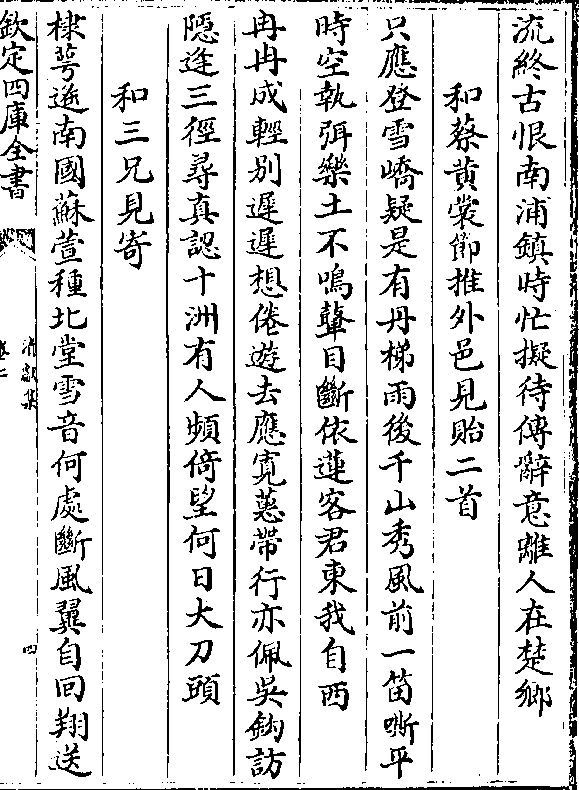 流終古恨南浦鎮時忙擬待傳辭意離人在楚鄉
和蔡黄裳節推外邑見貽二首
只應登雪嶠疑是有丹梯雨後千山秀風前一笛嘶平
時空執弭樂土不鳴鼙目斷依蓮客君東我自西
冉冉成輕別遲遲想倦遊去應寛蕙帶行亦佩吳鈎訪
隠迷三徑尋真認十洲有人頻倚望何日大刀頭
和三兄見寄
棣萼逰南國蘇萱種北堂雪音何處斷風翼自回翔送
欽定四庫全書
四